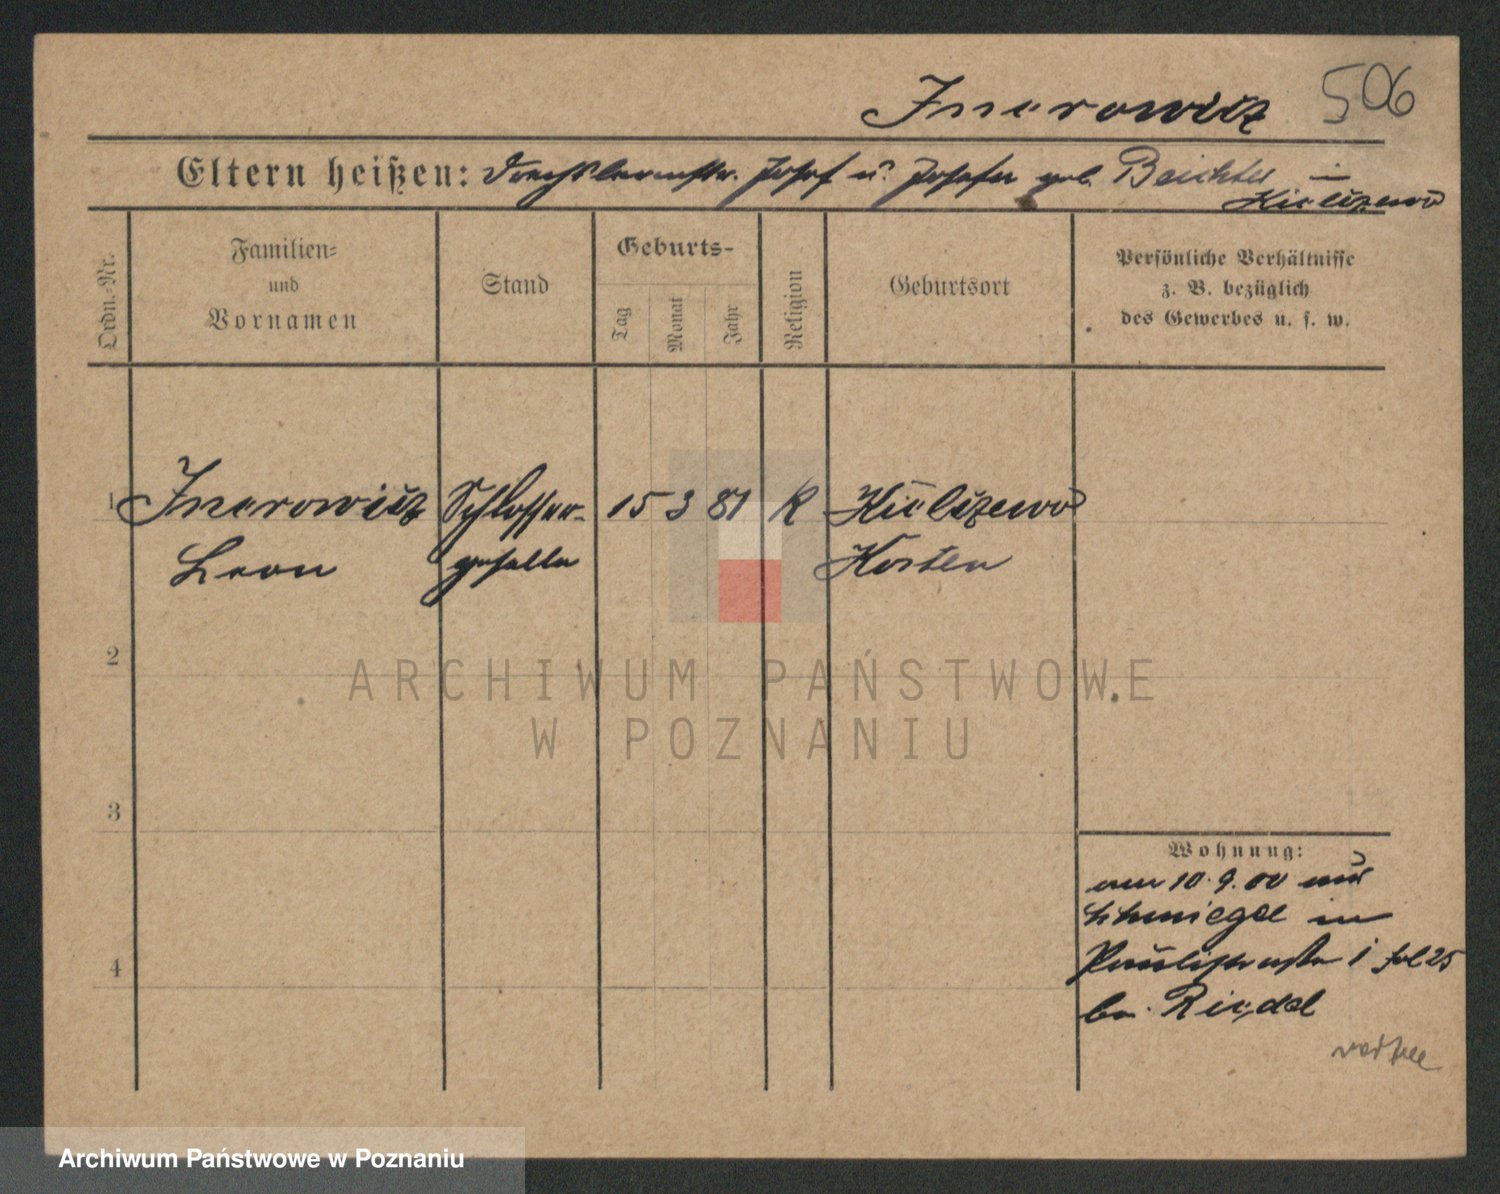 Inerowicz 506
Eltern heißen: Drechslermstr. Josef u. Josefa geb. Beichter in
Kieliszewo
Ordn.-Nr.
Familien-
und
Vornamen
Stand
Geburts-
Tag
Monat
Jahr
Religion
Geburtsort
Persönliche Verhältnisse
z. B. bezüglich
des Gewerbes u. s. w.
1 Inerowicz Schlosser- 15 3 81 K
Leon geselle Kosten
2
ARCHIWUM PAŃSTWOWE
W POZNANIU
3
4
Wohnung:
am 10.9.00 aus
Schmiegel in
Paulistraße 1 fol 25
bei Riedel
Archiwum Państwowe w Poznaniu